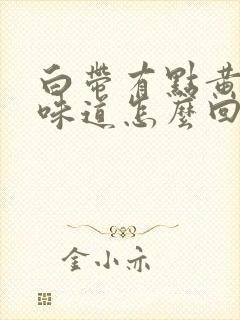 白帶有點黃
味道怎麼回
金小亦